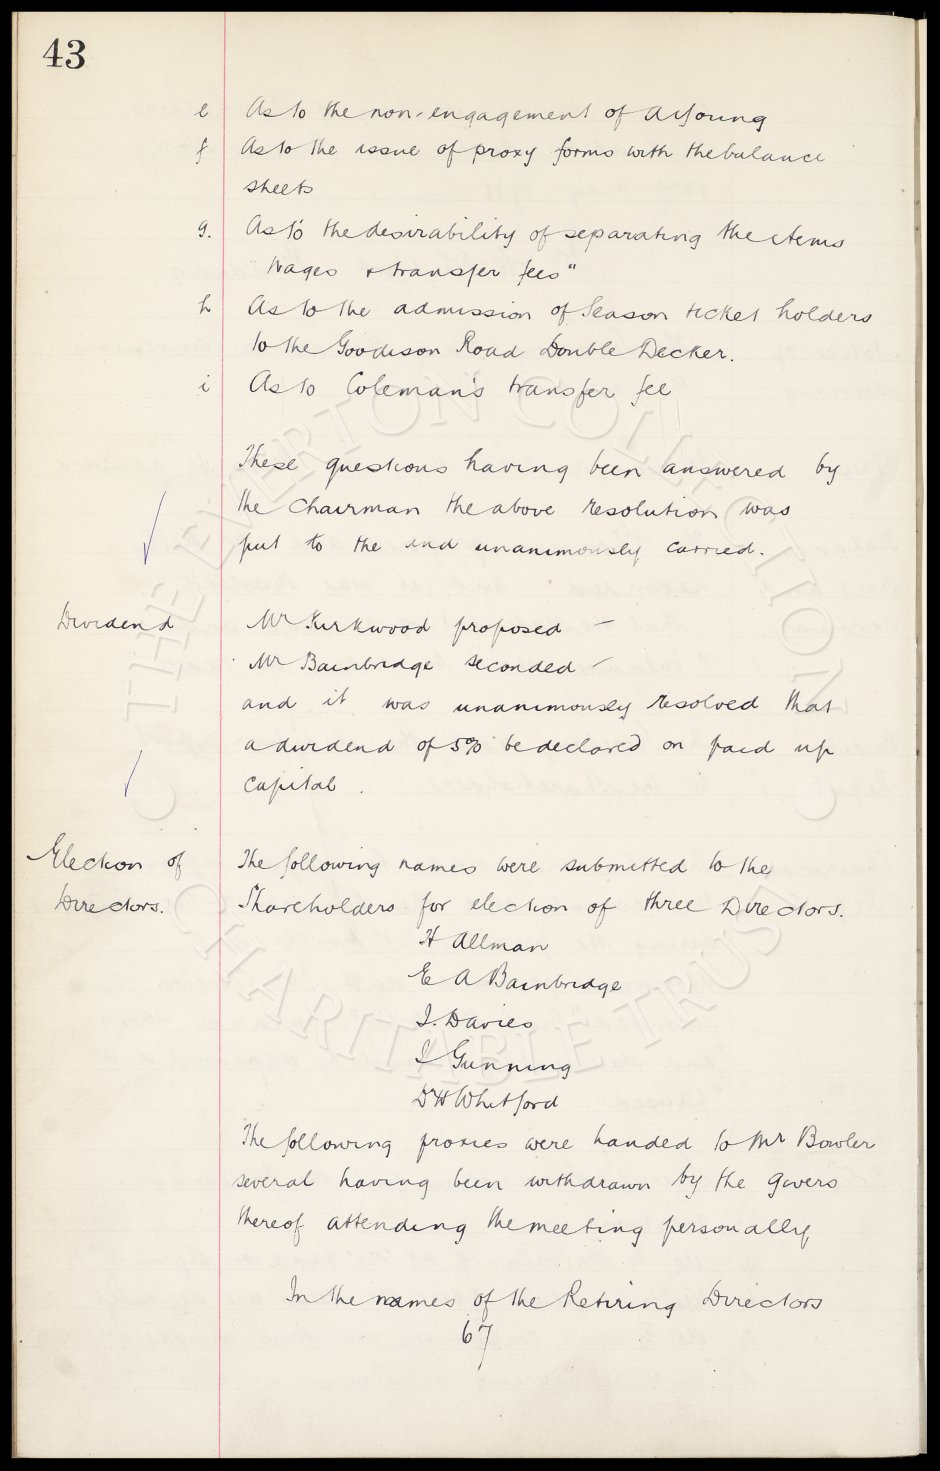 43
e As to the non-engagement of A Young
f As to the issue of proxy forms with the balance
sheets
g. As to the desirability of separating the items
"Wages & transfer fees"
h As to the admission of Season ticket holders
to the Goodison Road Double Decker.
i As to Coleman's transfer fee
These questions having been answered by
the Chairman the above resolution was
put to the and unanimously carried.
Dividend Mr Kirkwood proposed –
Mr Bainbridge seconded –
and it was unanimously resolved that
a dividend of 5% be declared on paid up
Capital.
Election of The following names were submitted to the
Directors. Shareholders for election of three Directors.
H Allman
E A Bainbridge
J. Davies
J Gunning
Dr H Whitford
The following proxies were handed to Mr Bowler
several having been withdrawn by the givers
thereof attending the meeting personally,
In the names of the Retiring Directors
67
THE EVERTON COLLECTION
CHARITABLE TRUST